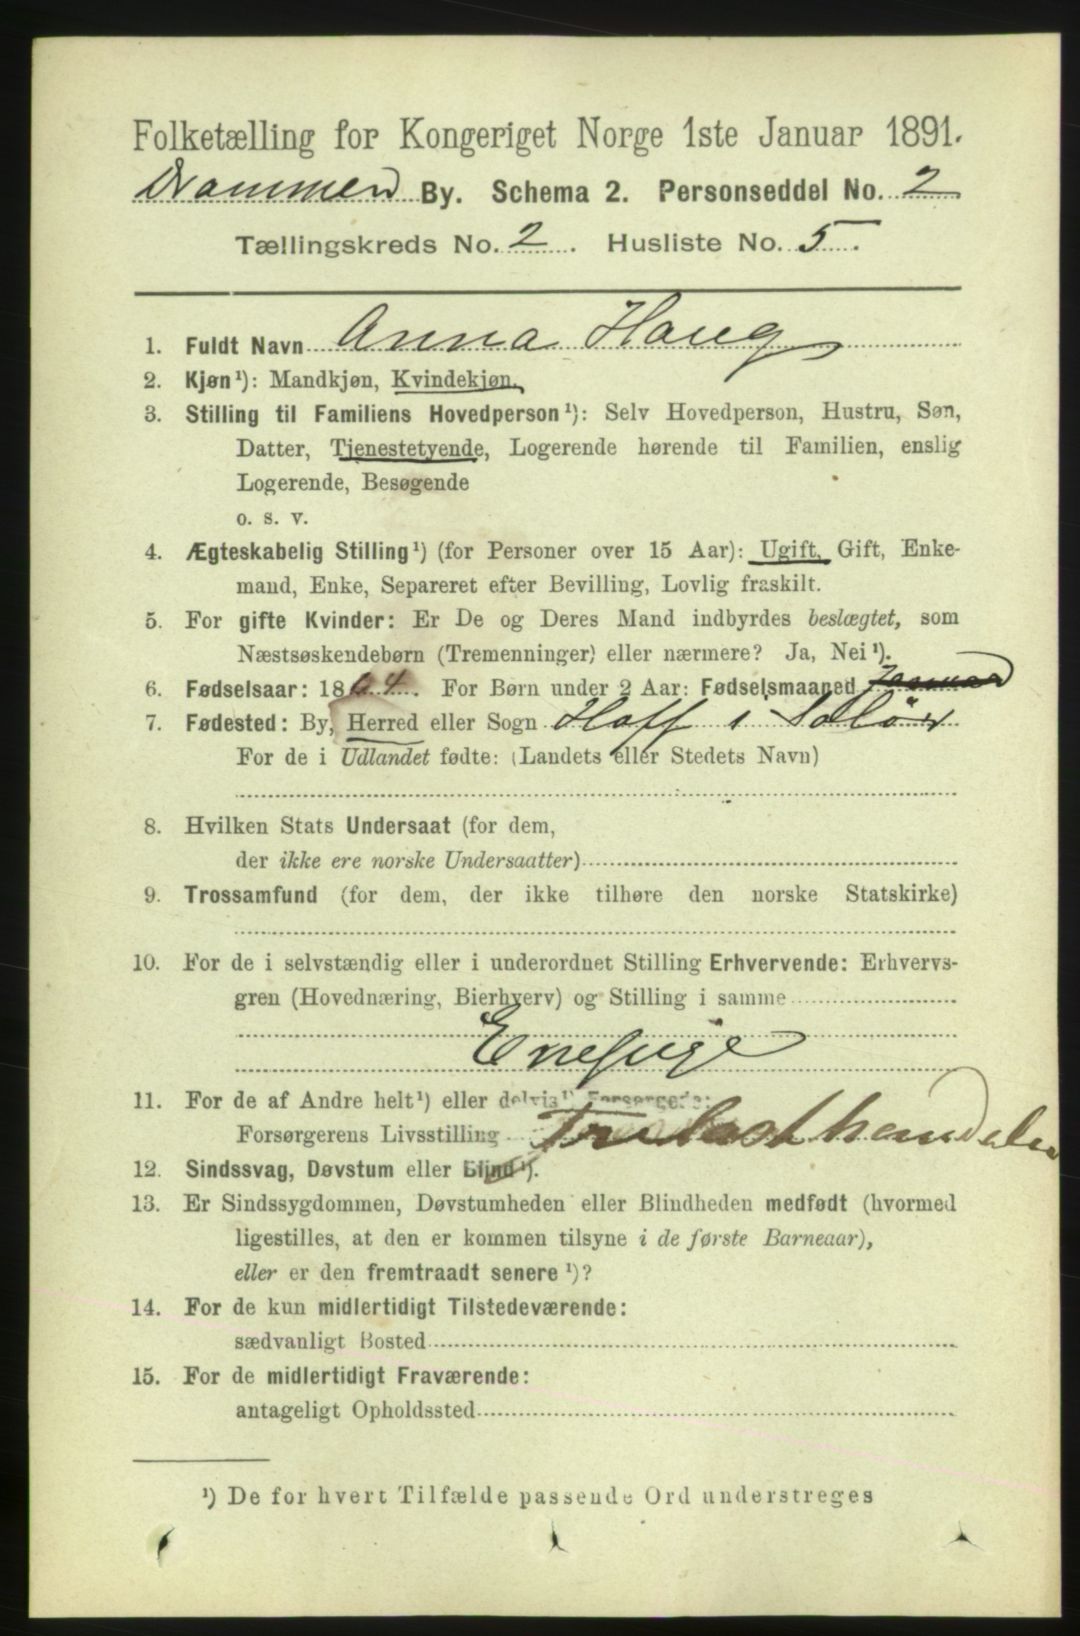 Folketælling for Kongeriget Norge 1ste Januar 1891.
Drammen By. Schema 2. Personseddel No. 2
Tællingskreds No. 2. Husliste No. 5.
1. Fuldt Navn Anna Haug
2. Kjøn¹): Mandkjøn, Kvindekjøn.
3. Stilling til Familiens Hovedperson¹): Selv Hovedperson, Hustru, Søn,
Datter, Tjenestetyende, Logerende hørende til Familien, enslig
Logerende, Besøgende
o. s. v.
4. Ægteskabelig Stilling¹) (for Personer over 15 Aar): Ugift, Gift, Enke-
mand, Enke, Separeret efter Bevilling, Lovlig fraskilt.
5. For gifte Kvinder: Er De og Deres Mand indbyrdes beslægtet, som
Næstsøskendebørn (Tremenninger) eller nærmere? Ja, Nei¹).
6. Fødselsaar: 1864. For Børn under 2 Aar: Fødselsmaaned Januar
7. Fødested: By, Herred eller Sogn Hoff i Solör
For de i Udlandet fødte: (Landets eller Stedets Navn)
8. Hvilken Stats Undersaat (for dem,
der ikke ere norske Undersaatter)
9. Trossamfund (for dem, der ikke tilhøre den norske Statskirke)
10. For de i selvstændig eller i underordnet Stilling Erhvervende: Erhvervs-
gren (Hovednæring, Bierhverv) og Stilling i samme
Enepige
11. For de af Andre helt¹) eller delvis¹) Forsørgede:
Forsørgerens Livsstilling Trælasthandeler
12. Sindssvag, Døvstum eller Blind¹).
13. Er Sindssygdommen, Døvstumheden eller Blindheden medfødt (hvormed
ligestilles, at den er kommen tilsyne i de første Barneaar),
eller er den fremtraadt senere¹)?
14. For de kun midlertidigt Tilstedeværende:
sædvanligt Bosted
15. For de midlertidigt Fraværende:
antageligt Opholdssted
¹) De for hvert Tilfælde passende Ord understreges